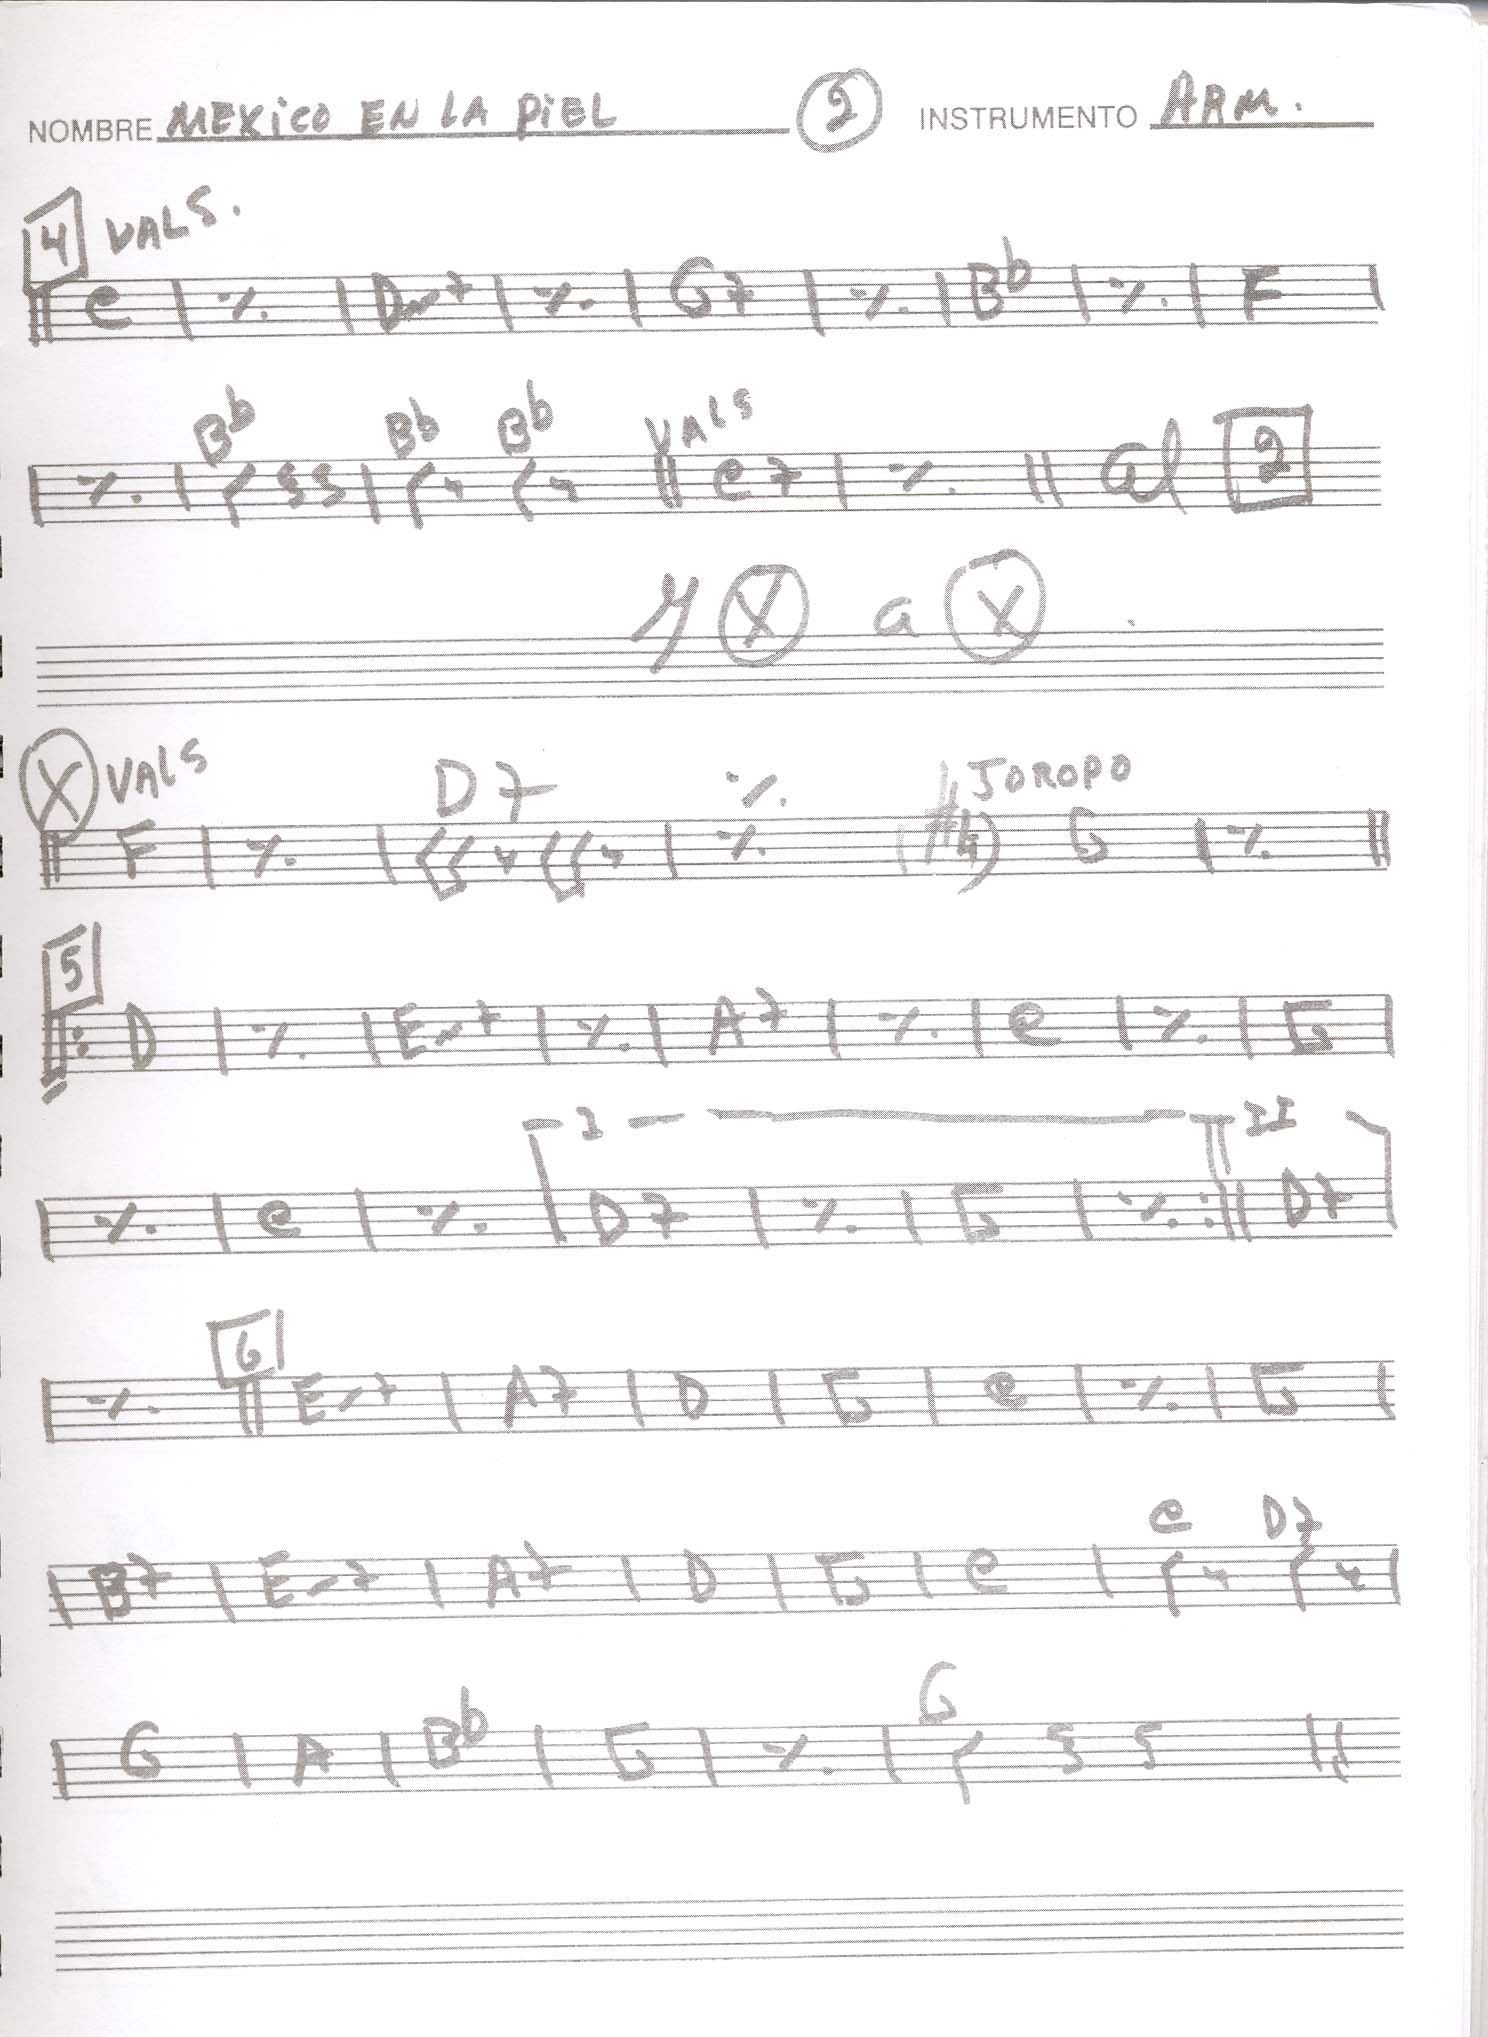 NOMBRE MEXICO EN LA PIEL 2 INSTRUMENTO ARM.
4 VALS.
C | ٪ | Dm7 | ٪ | G7 | ٪ | Bb | ٪ | F |
Bb Bb Bb VALS
| ٪ | | || C7 | ٪ || al 2
y X a X
X VALS D7 ٪ JOROPO
|| F | ٪ | | ٪ (#4) G | ٪ ||
5
||: D | ٪ | Em7 | ٪ | A7 | ٪ | C | ٪ | G |
I II
| ٪ | C | ٪ | D7 | ٪ | G | ٪ :|| D7 |
6
| ٪ || Em7 | A7 | D | G | C | ٪ | G |
C D7
| B7 | Em7 | A7 | D | G | C | |
G
| G | A | Bb | G | ٪ | ||